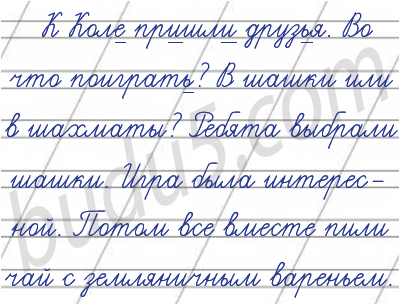 К Коле пришли друзья. Во
что поиграть? В шашки или
в шахматы? Ребята выбрали
шашки. Игра была интерес-
ной. Потом все вместе пили
чай с земляничным вареньем.
budu5.com